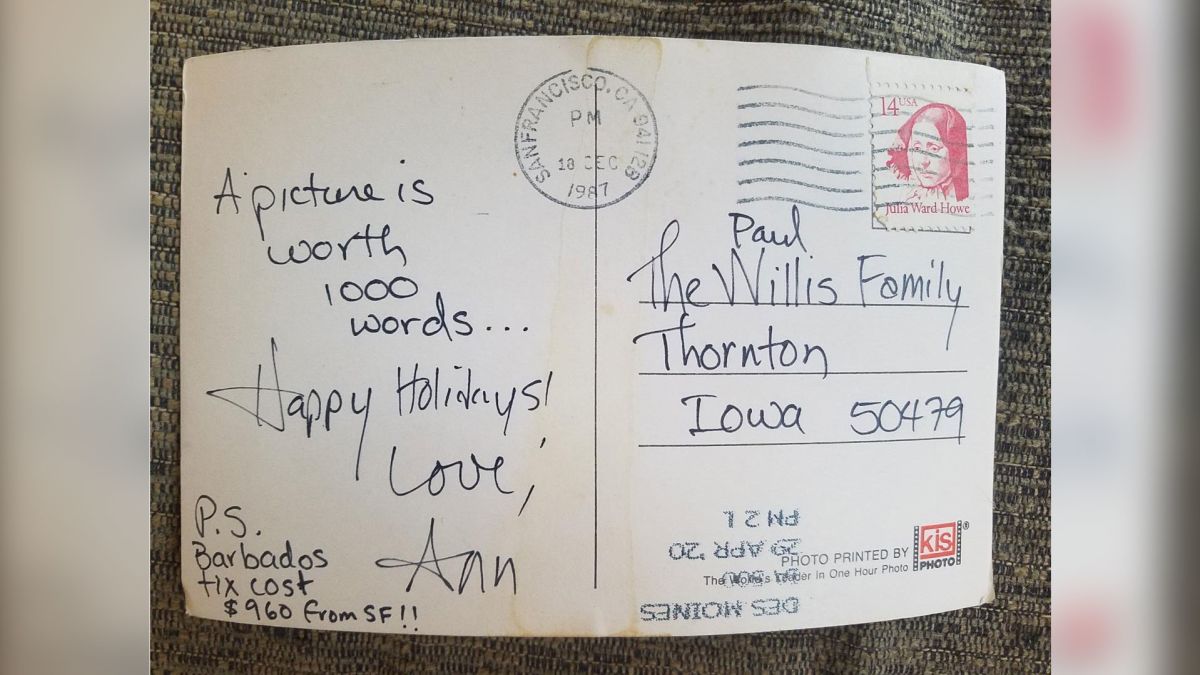 A picture is
worth
1000
words...
Happy Holidays!
Love,
Ann
P.S.
Barbados
tix cost
$960 from SF!!
SAN FRANCISCO, CA 941
PM
18 DEC
1987
14 USA
Julia Ward Howe
Paul
The Willis Family
Thornton
Iowa 50479
PHOTO PRINTED BY
The World's Leader In One Hour Photo
kis®
PHOTO
DES MOINES
29 APR '20
PM 2 L